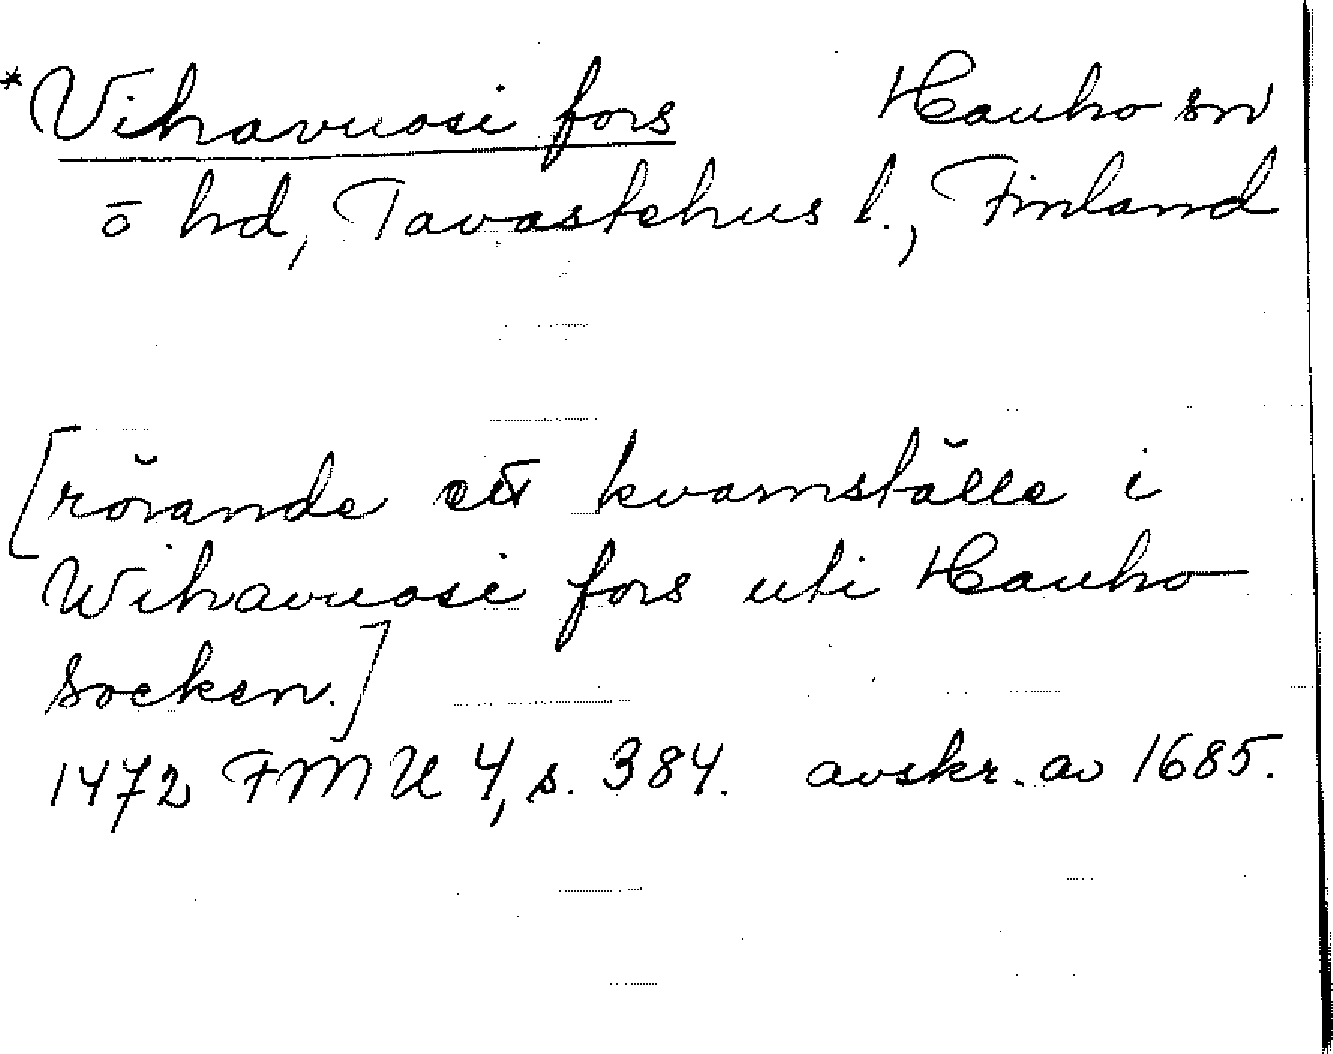 *Vihavuosi fors Hauho sn
ö hd, Tavastehus l., Finland
[rörande ett kvarnställe i
Wihavuosi fors uti Hauho
socken.]
1472 FMU 4, s. 384. avskr. av 1685.